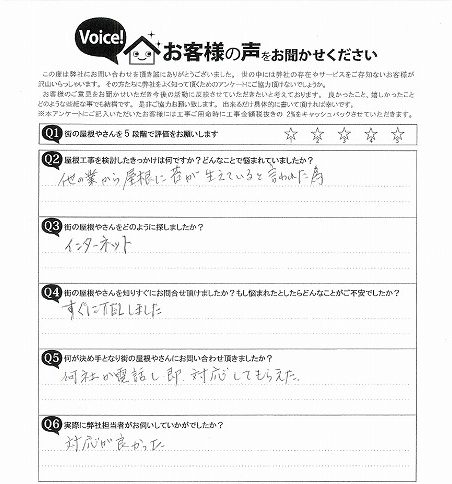 Voice!
お客様の声をお聞かせください
この度は弊社にお問い合わせを頂き誠にありがとうございました。世の中には弊社の存在やサービスをご存知ないお客様が
沢山いらっしゃいます。その方たちに弊社をよく知って頂くためのアンケートにご協力頂けないでしょうか。
お客様のご意見をお聞かせいただき今後の活動に反映させていただきたいと考えております。良かったこと、嬉しかったこと
どのような些細な事でも結構です。是非ご協力お願い致します。出来るだけ具体的に書いて頂ければ幸いです。
※本アンケートにご記入いただいたお客様には工事ご用命時に工事金額税抜きの 2%をキャッシュバックさせていただきます。
Q1 街の屋根やさんを 5 段階で評価をお願いします ☆ ☆ ☆ ☆ ☆
Q2 屋根工事を検討したきっかけは何ですか?どんなことで悩まれていましたか?
他の業から屋根に苔が生えていると言われた為
Q3 街の屋根やさんをどのように探しましたか?
インターネット
Q4 街の屋根やさんを知りすぐにお問合せ頂けましたか?もし悩まれたとしたらどんなことがご不安でしたか?
すぐにTELしました
Q5 何が決め手となり街の屋根やさんにお問い合わせ頂きましたか?
何社か電話し即、対応してもらえた。
Q6 実際に弊社担当者がお伺いしていかがでしたか?
対応が良かった